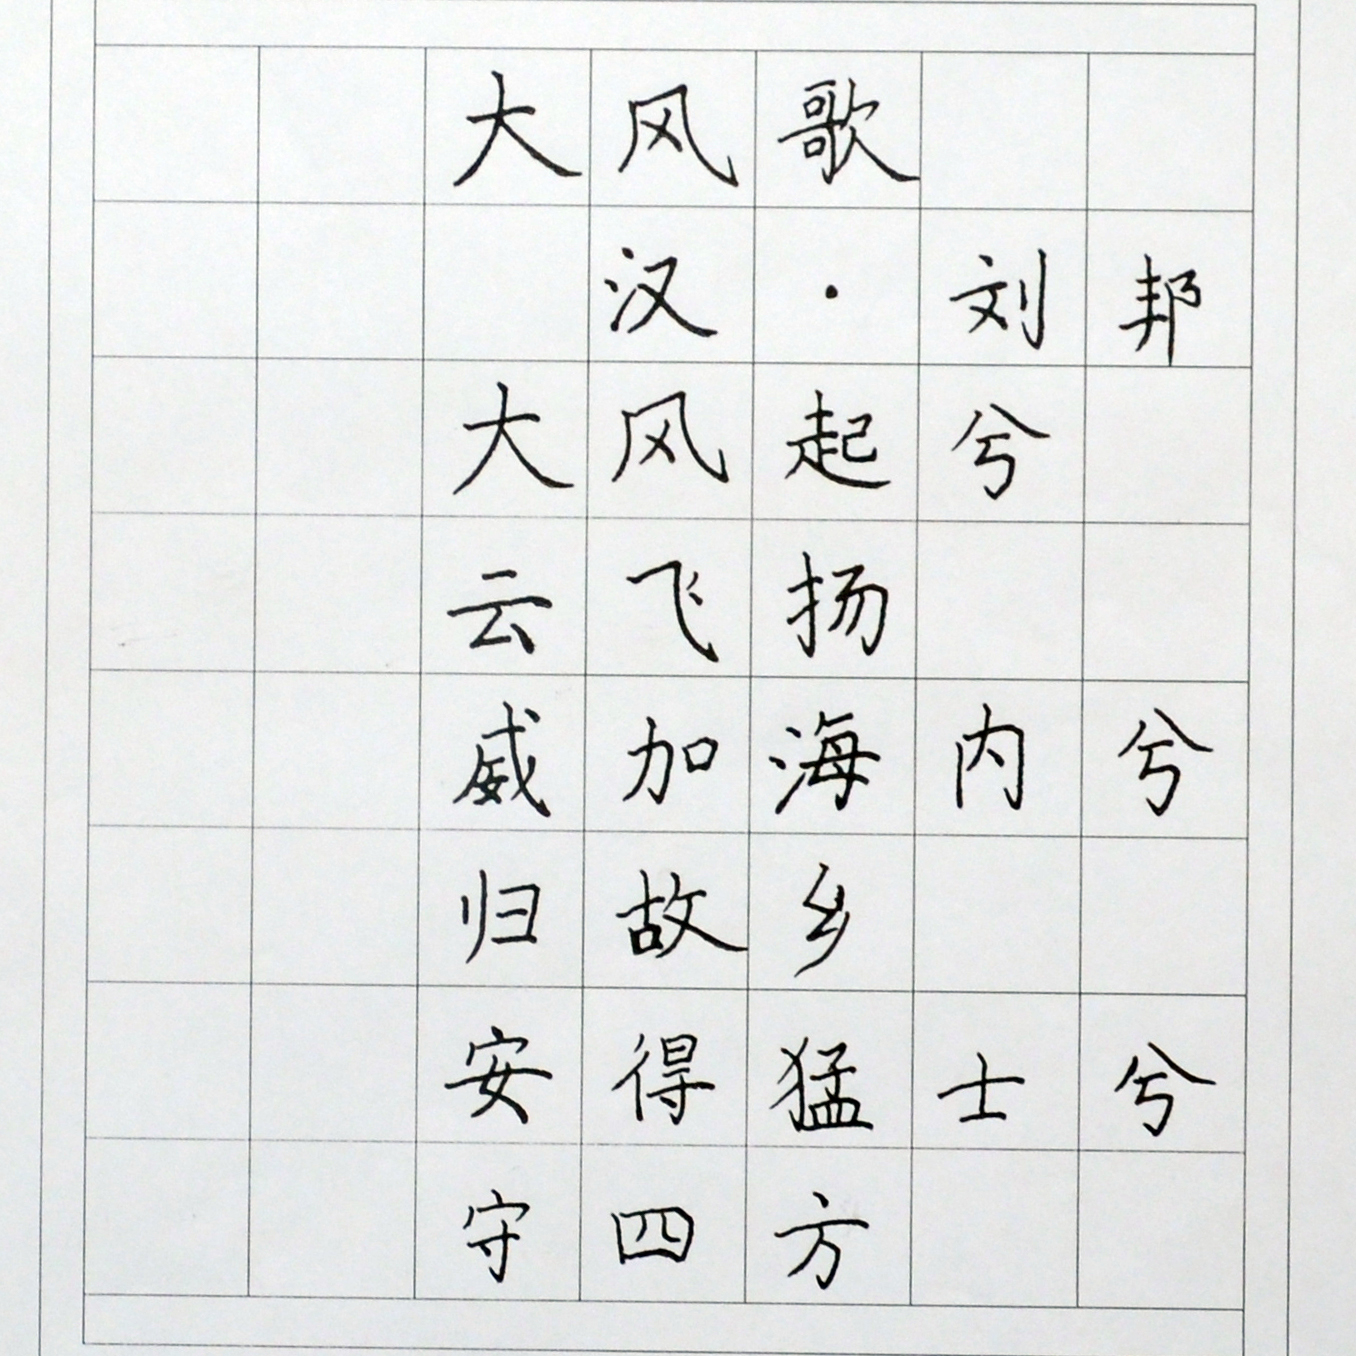 大风歌
汉·刘邦
大风起兮
云飞扬
威加海内兮
归故乡
安得猛士兮
守四方